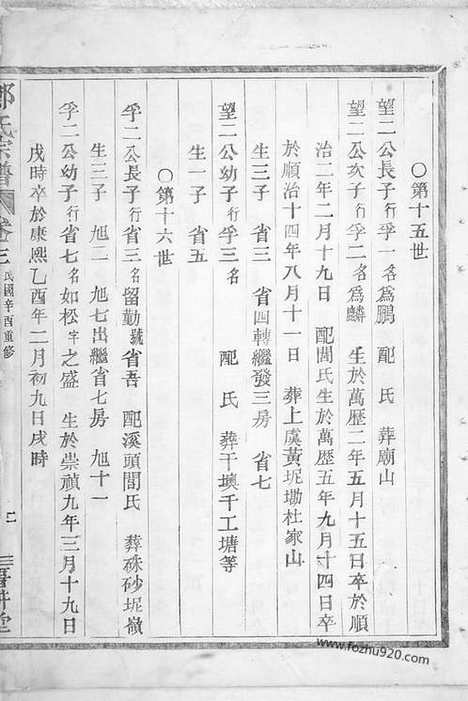 ○第十五世
望二公長子行孚一名爲鵬　配　氏　葬廟山
望二公次子行孚二名爲麟　生於萬歷二年五月十五日卒於順
治二年二月十九日　配閭氏生於萬歷五年九月十四日卒
於順治十四年八月十一日　葬上虞黃坭墈杜家山
生三子　省三　省四轉繼發三房　省七
望二公幼子行孚三名　配　氏　葬干墺千工塘等
生一子　省五
○第十六世
孚二公長子行省三名留勤號省吾　配溪頭閭氏　葬硃砂坭嶺
生三子　旭二　旭七出繼省七房　旭十一
孚二公幼子行省七名如松字之盛　生於崇禎九年三月十九日
戌時卒於康熙乙酉年二月初九日戌時
氏宗譜　卷三　民國辛酉重修　二
www.fozhu920.com